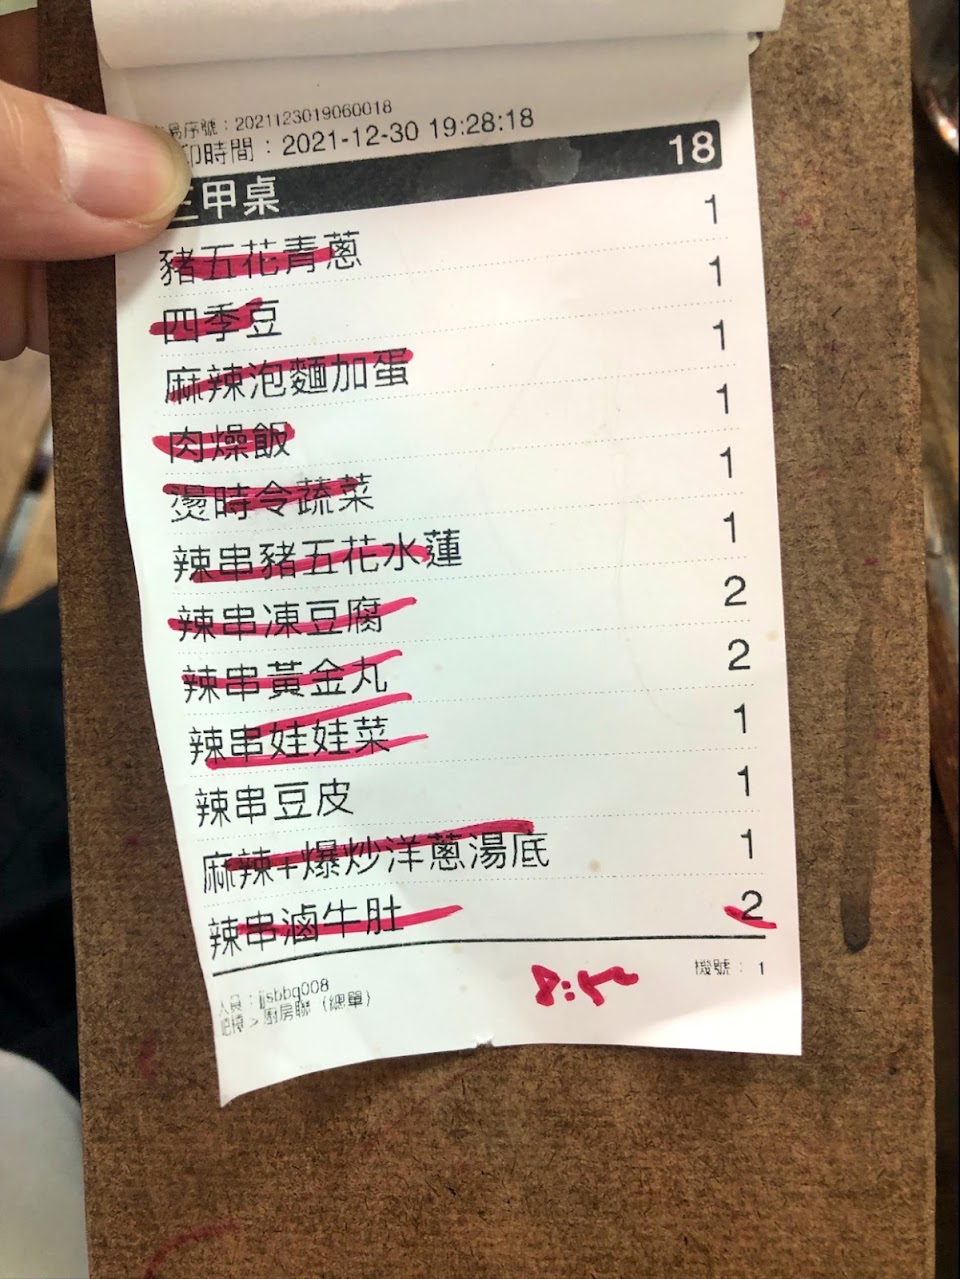 易序號：2021123019060018
印時間：2021-12-30 19:28:18
甲桌 18
豬五花青蔥 1
四季豆 1
麻辣泡麵加蛋 1
肉燥飯 1
燙時令蔬菜 1
辣串豬五花水蓮 1
辣串凍豆腐 2
辣串黃金丸 2
辣串娃娃菜 1
辣串豆皮 1
麻辣+爆炒洋蔥湯底 1
辣串滷牛肚 2
機號：1
人員：jjsbbq008
吧檯 > 廚房聯 (總單)